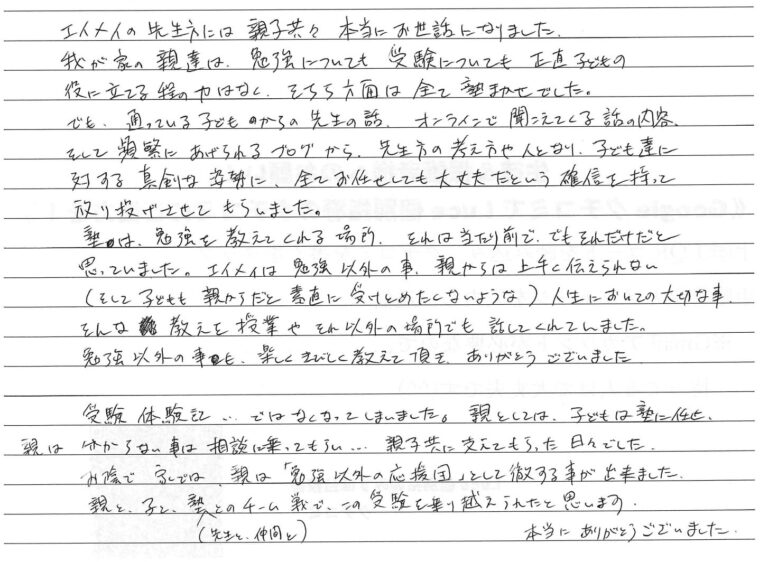 エイメイの先生方には親子共々本当にお世話になりました。
我が家の親達は、勉強についても受験についても正直子どもの
役に立てる程の力はなく、そちら方面は全て塾まかせでした。
でも、通っている子どもからの先生の話、オンラインで聞こえてくる話の内容、
そして頻繁にあげられるブログから、先生方の考え方や人となり、子ども達に
対する真剣な姿勢に、全てお任せしても大丈夫だという確信を持って
放り投げさせてもらいました。
塾は、勉強を教えてくれる場所、それは当たり前で、でもそれだけだと
思っていました。エイメイは勉強以外の事、親からは上手く伝えられない
(そして子どもも親からだと素直に受けとめたくないような)人生においての大切な事、
そんな教えを授業やそれ以外の場所でも話してくれていました。
勉強以外の事も、楽しくきびしく教えて頂き、ありがとうございました。
受験体験記…ではなくなってしまいました。親としては、子どもは塾に任せ、
親は分からない事は相談に乗ってもらい…親子共に支えてもらった日々でした。
お陰で家では、親は「勉強以外の応援団」として徹する事が出来ました。
親と、子と、塾とのチーム戦で、この受験を乗り越えられたと思います。
(先生と、仲間と)
本当にありがとうございました。